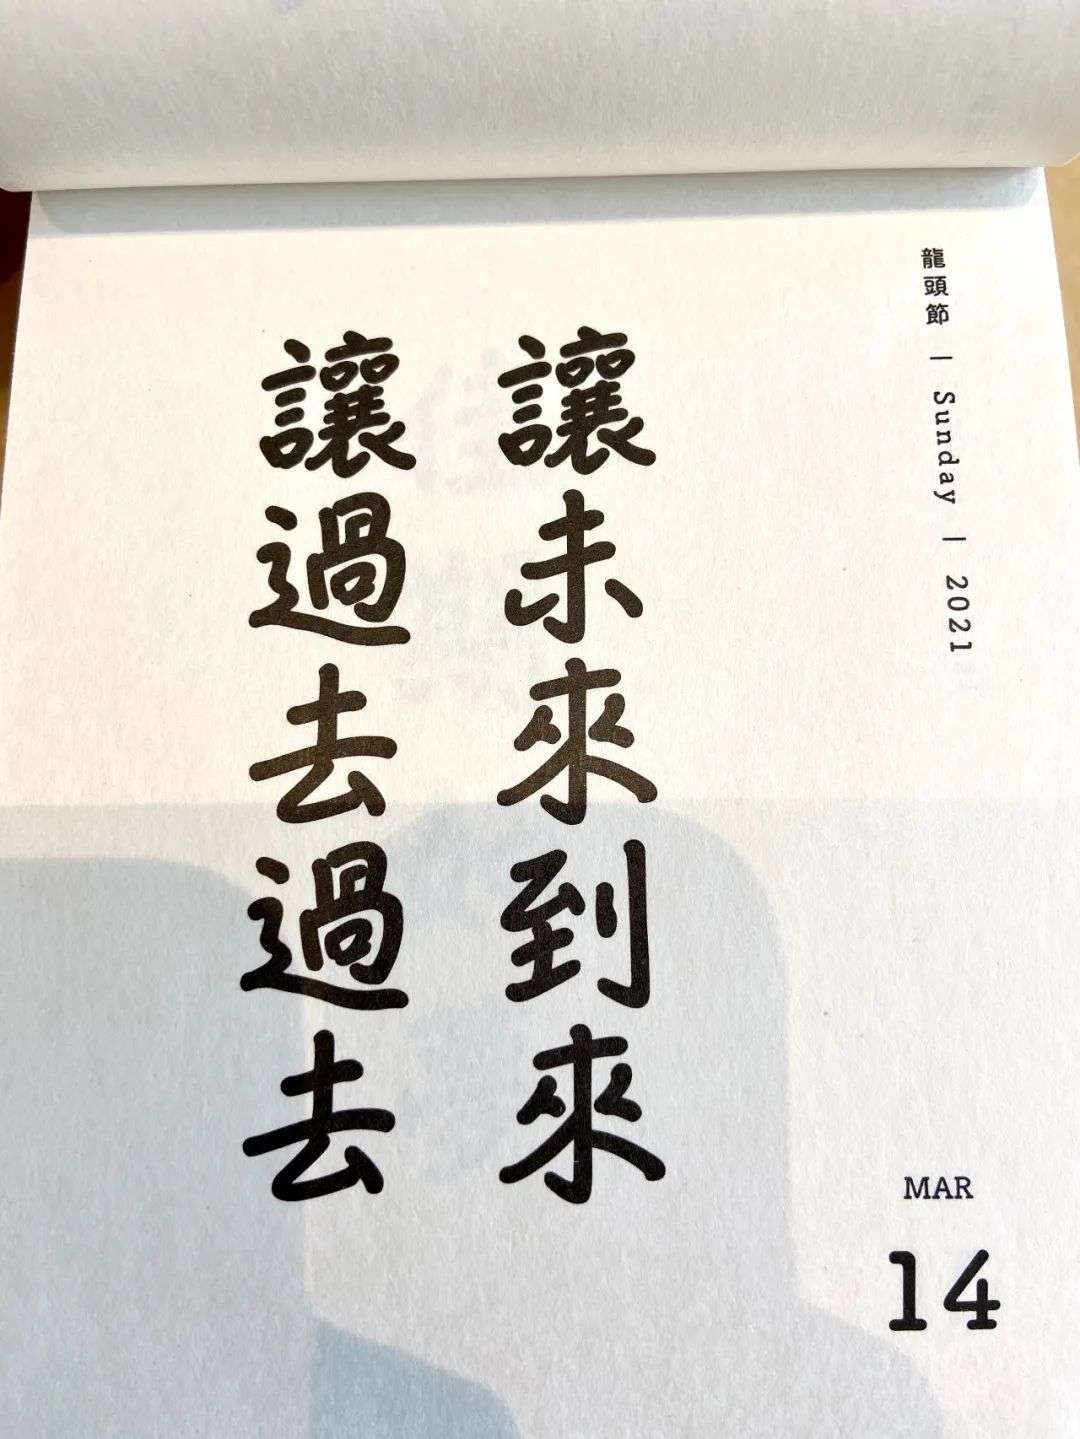 龍頭節 | Sunday | 2021
讓未來到來
讓過去過去
MAR
14